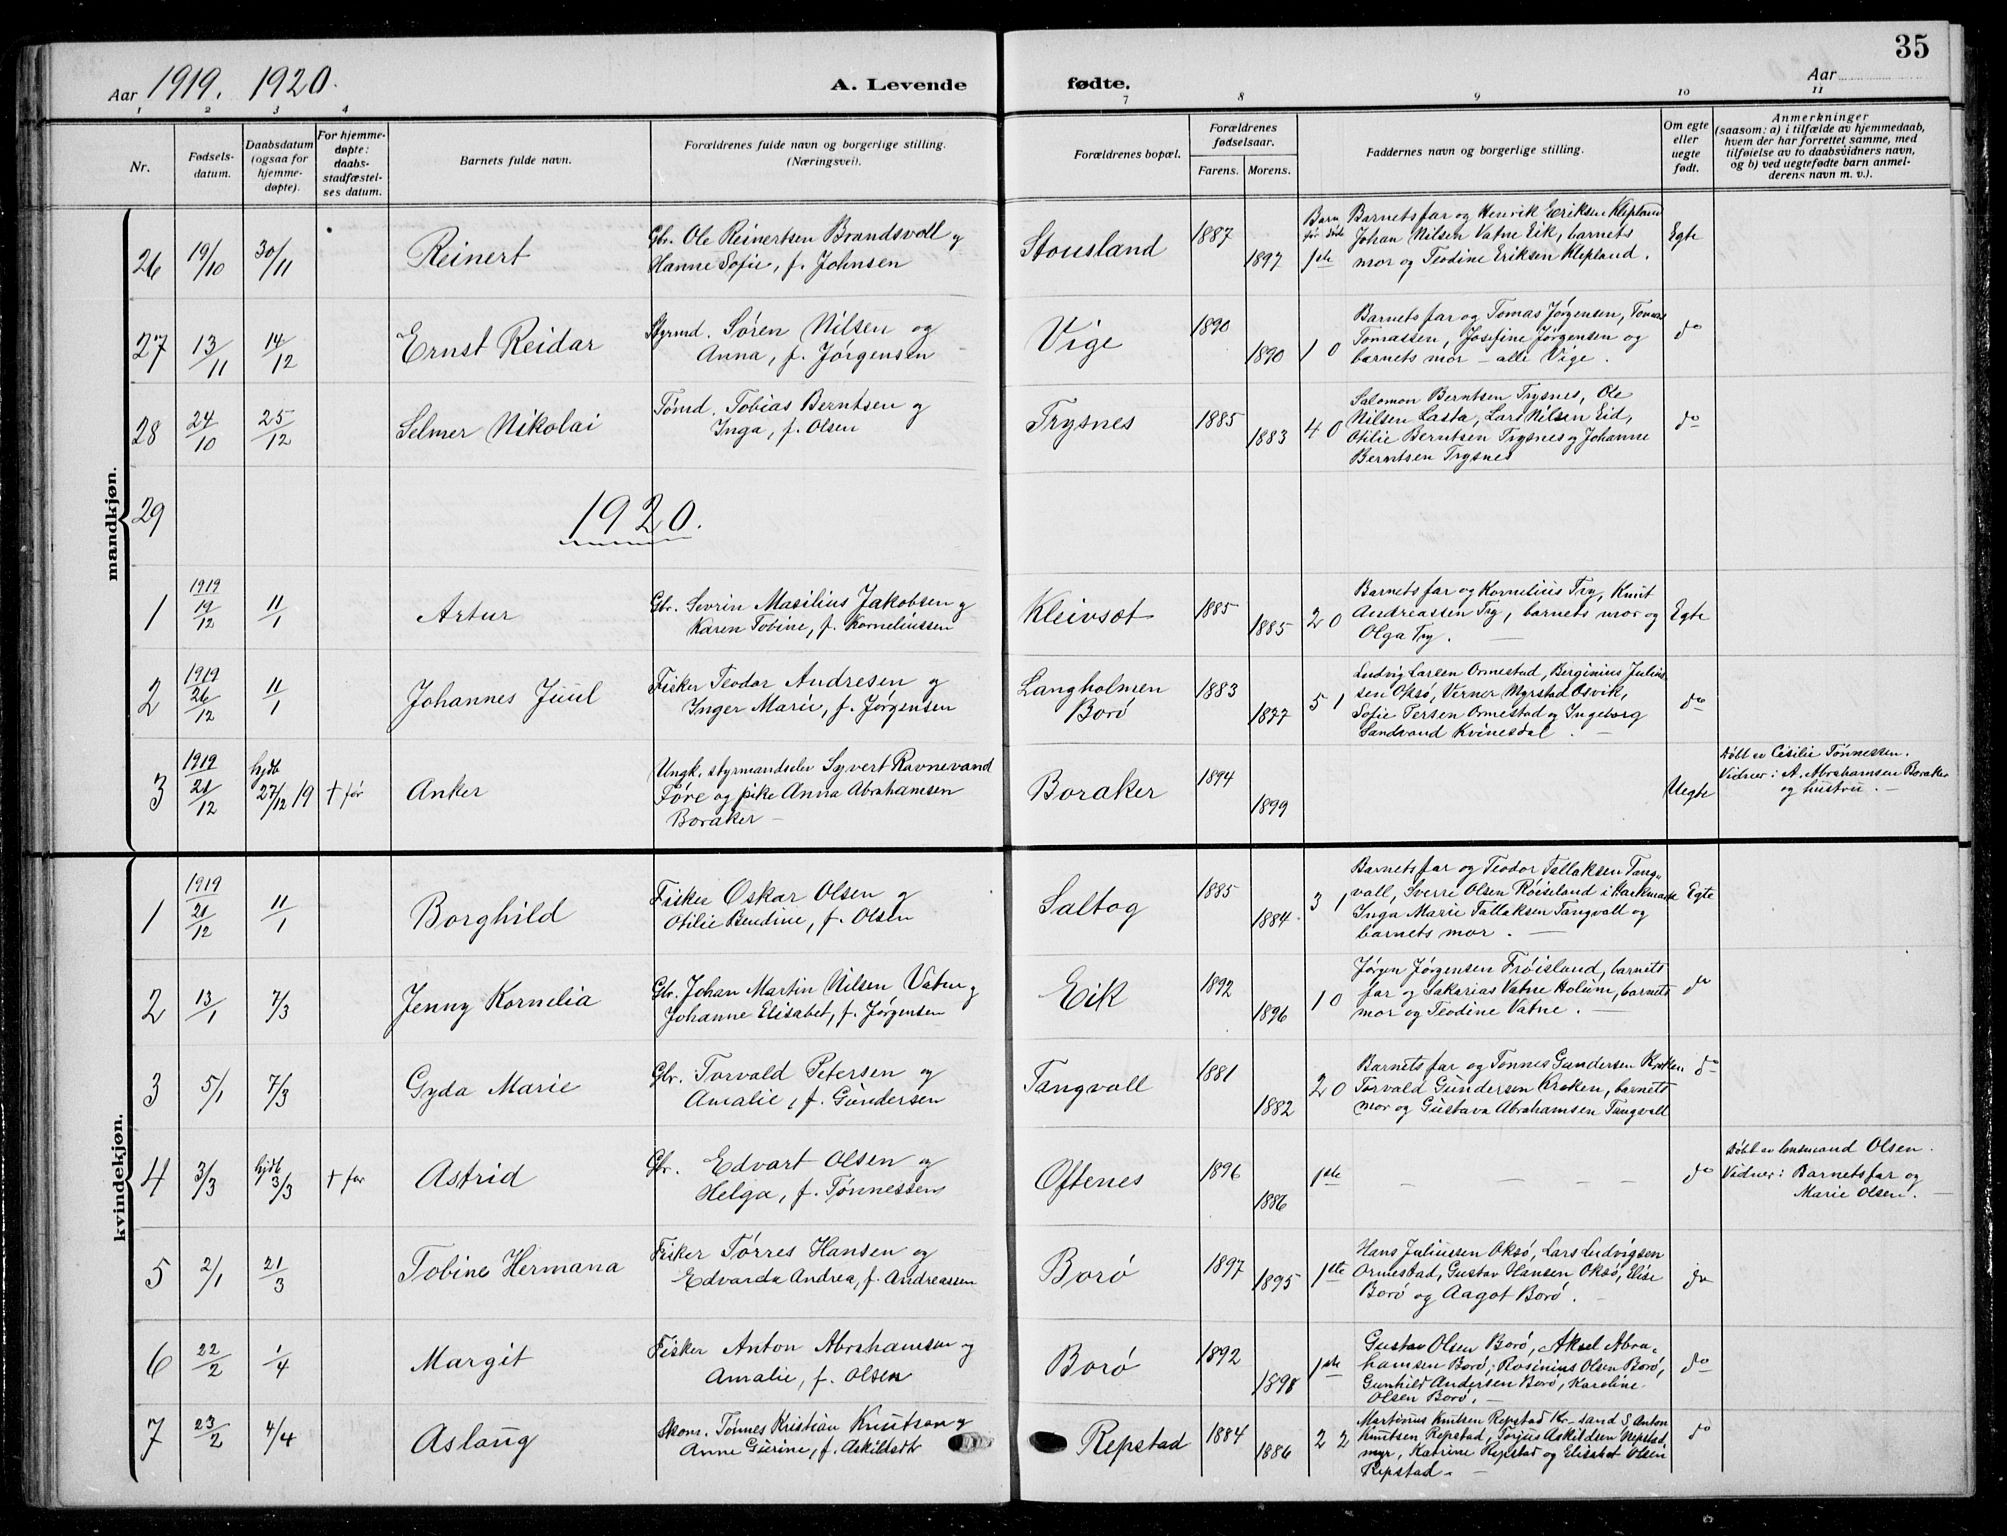 35
Aar 1919. 1920. A. Levende fødte. Aar
1 2 3 4 7 8 9 10 11
Nr. Fødsels-datum. Daabsdatum (ogsaa for hjemme-døpte). For hjemme-døpte: daabs-stadfæstel-ses datum. Barnets fulde navn. Forældrenes fulde navn og borgerlige stilling. (Næringsvei). Forældrenes bopæl. Forældrenes fødselsaar. Farens. Morens. Faddernes navn og borgerlige stilling. Om egte eller uegte født. Anmerkninger
(saasom: a) i tilfælde av hjemmedaab,
hvem der har forrettet samme, med
tilføielse av to daabsvidners navn,
og b) ved uegtefødte barn anmel-
derens navn m. v.).
mandkjøn.
26 19/10 30/11 Reinert
Gbr. Ole Reinertsen Brandsvoll og
Hanne Sofie, f. Johnsen
Stousland 1887 1897 Barn før døde 1ste
Barnets far og Henrik Eriksen Klepland
Johan Nilsen Vatne Eik, barnets
mor og Teodine Eriksen Klepland.
Egte
27 13/11 14/12 Ernst Reidar
Styrmd. Søren Nilsen og
Anna, f. Jørgensen
Vige 1890 1890 1 0
Barnets far og Tomas Jørgensen, Tomas
Tomassen, Josefine Jørgensen og
barnets mor – alle Vige.
do
28 24/10 25/12 Selmer Nikolai
Tømd. Tobias Berntsen og
Inga, f. Olsen
Trysnes 1885 1883 4 0
Salomon Berntsen Trysnes, Ole
Nilsen Lasta, Lars Nilsen Eid,
Otilie Berntsen Trysnes og Johanne
Berntsen Trysnes
do
29
1920.
1 1919 19/12 11/1 Artur
Gbr. Sevrin Masilius Jakobsen og
Karen Tobine, f. Korneliussen
Kleivset 1885 1885 2 0
Barnets far og Kornelius Try, Knut
Andreassen Try, barnets mor og
Olga Try. –
Egte
2 1919 26/12 11/1 Johannes Juul
Fisker Teodor Andresen og
Inger Marie, f. Jørgensen
Langholmen
Borø
1883 1877 5 1
Ludvig Larsen Ormestad, Berginius Julius-
sen Oksø, Verner Myrstad Osvik,
Sofie Persen Ormestad og Ingeborg
Sandvand Kvinesdal. –
do
3 1919 21/12 hjdb 27/12 19 † før Anker
Ungk. styrmandselev Syvert Ravnevand
Føre og pike Anna Abrahamsen
Boraker –
Boraker 1894 1899
Uegte
Døbt av Cesilie Tønnessen.
Vidner: A. Abrahamsen Boraker
og hustru. –
kvindekjøn.
1 1919 21/12 11/1 Borghild
Fisker Oskar Olsen og
Otilie Bendine, f. Olsen
Saltog 1885 1884 3 1
Barnets far og Teodor Tallaksen Tang-
vall, Sverre Olsen Røiseland i Harkmark
Inga Marie Tallaksen Tangvall og
barnets mor. –
Egte
2 13/1 7/3 Jenny Kornelia
Gbr. Johan Martin Nilsen Vatne og
Johanne Elisabet, f. Jørgensen
Eik 1892 1896 1 0
Jørgen Jørgensen Frøisland, barnets
far og Sakarias Vatne Holum, barnets
mor og Teodine Vatne. –
do
3 5/1 7/3 Gyda Marie
Gbr. Torvald Petersen og
Amalie, f. Gundersen
Tangvall 1881 1882 2 0
Barnets far og Tønnes Gundersen Kroken
Torvald Gundersen Kroken, barnets
mor og Gustava Abrahamsen Tangvall
do
4 3/3 hjdb 3/3 † før Astrid
Gbr. Edvart Olsen og
Helga, f. Tønnessen
Oftenes 1896 1886 1ste – – – – –
do
Døbt av lensmand Olsen.
Vidner: Barnets far og
Marie Olsen. –
5 2/1 21/3 Tobine Hermana
Fisker Tørres Hansen og
Edvarda Andrea, f. Andreassen
Borø 1897 1895 1ste
Hans Juliussen Oksø, Lars Ludvigsen
Ormestad, Gustav Hansen Oksø, Elise
Borø og Aagot Borø. –
do
6 22/2 1/4 Margit
Fisker Anton Abrahamsen og
Amalie, f. Olsen
Borø 1892 1898 1ste
Gustav Olsen Borø, Aksel Abra-
hamsen Borø, Rosinius Olsen Borø,
Gunhild Andersen Borø, Karoline
Olsen Borø. –
do
7 23/2 4/4 Aslaug
Skom. Tønnes Kristian Knutson og
Anne Gurine, f. Askildsdt
Repstad 1884 1886 2 2
Martinus Knutsen Repstad Kr-sand S, Anton
Knutsen Repstad, Torjus Askildsen Repstad
myr, Katrine Repstad og Elisabet Olsen
Repstad. –
do